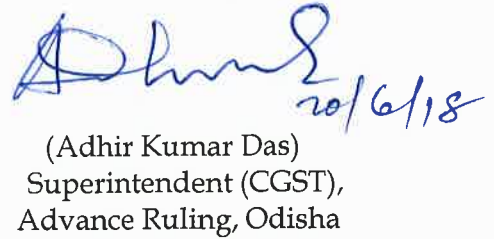 20/6/18
(Adhir Kumar Das)
Superintendent (CGST),
Advance Ruling, Odisha